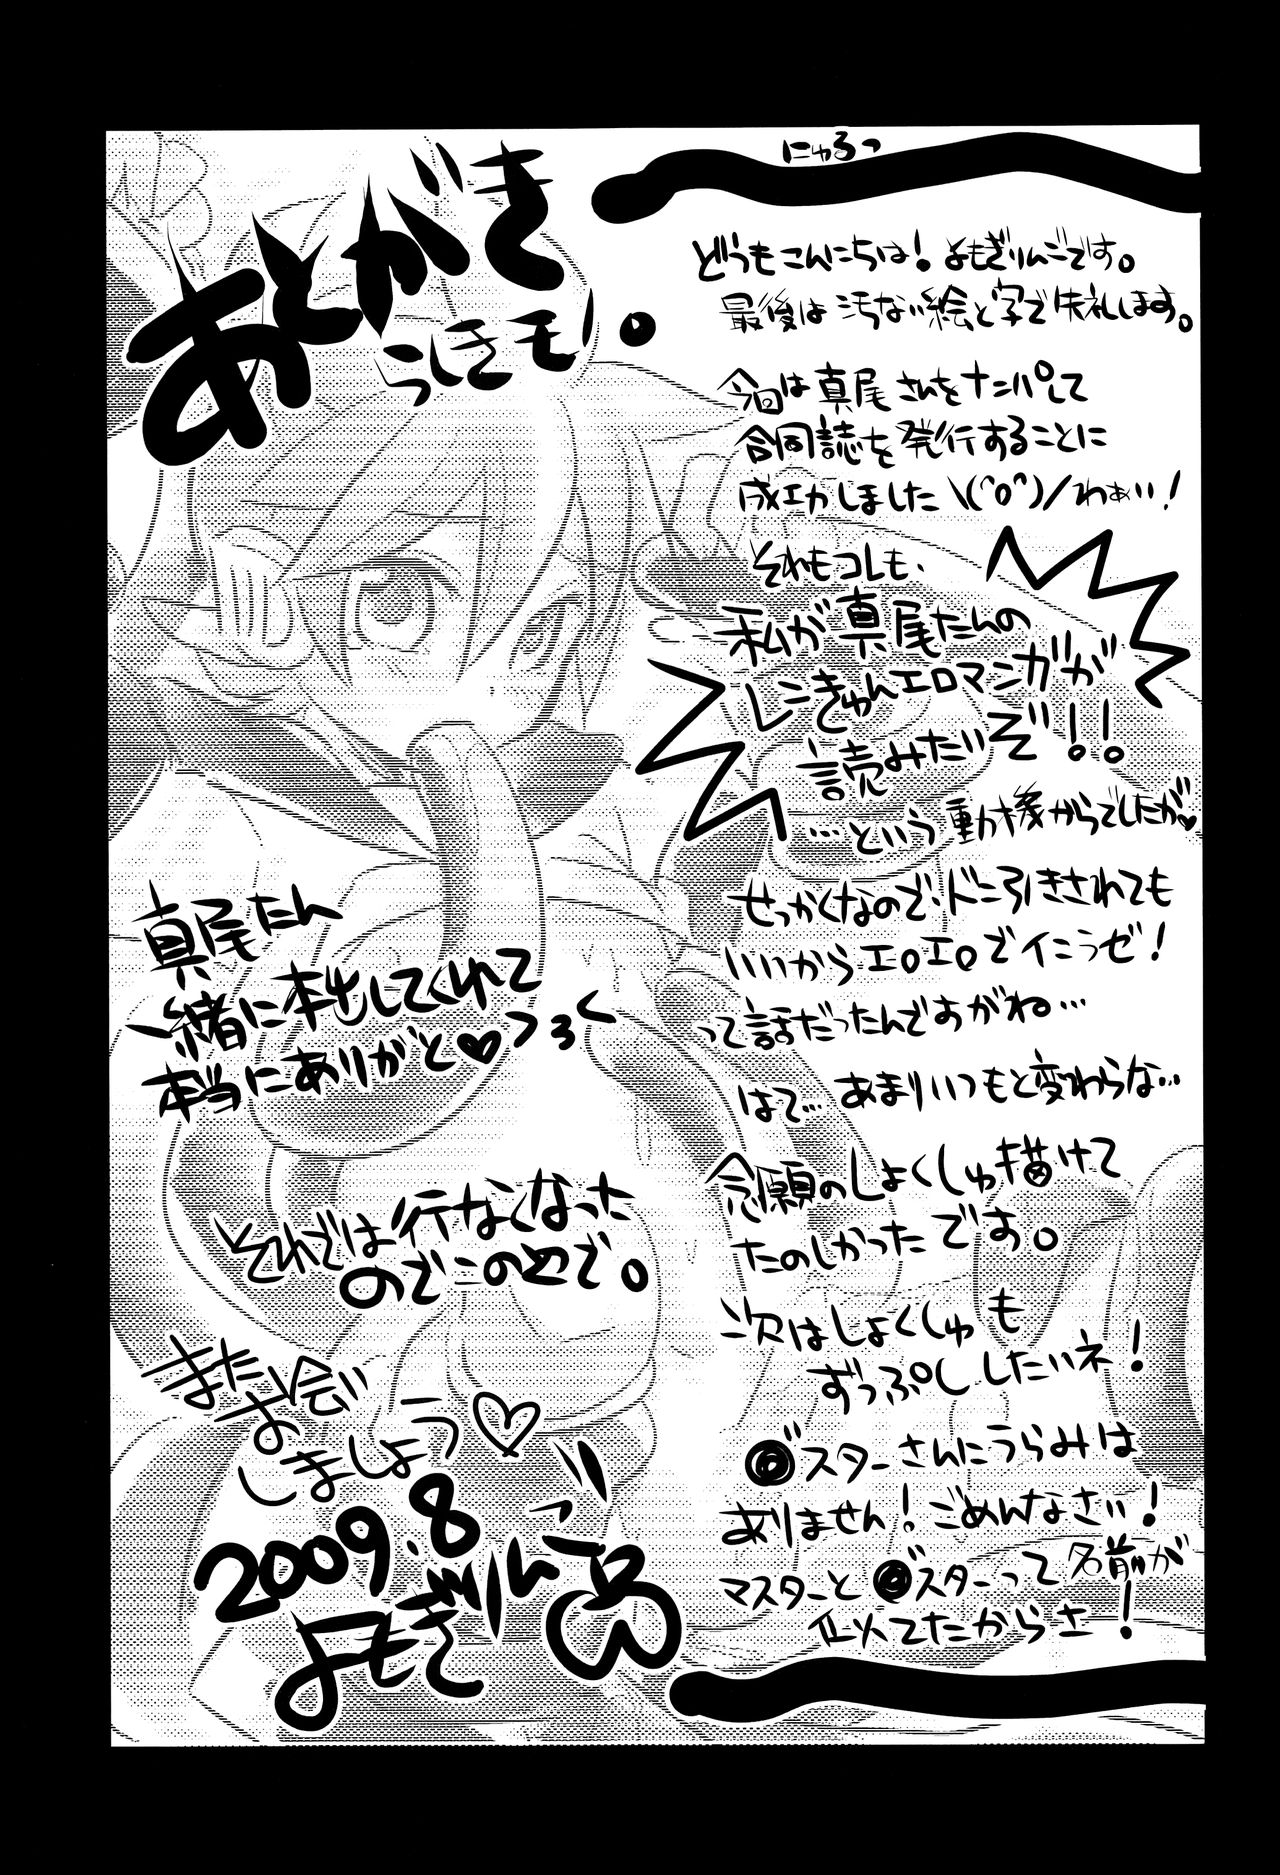 あとがき
らしきモノ。
にゅるっ
どうもこんにちは！よもぎりんごです。
最後は汚ない絵と字で失礼します。
今回は真尾さんをナンパして
合同誌を発行することに
成功しました\(^o^)/わぁい！
それもコレも、
私が真尾たんの
レニきゅんエロマンガが
読みたいぞ!!
…という動機からでしたが♥
せっかくなので、ドン引きされても
いいからエロエロでイこうぜ！
って話だったんですがね…
はて…あまりいつもと変わらな…
念願のしょくしゅ描けて
たのしかったです。
次はしょくしゅも
ずっぷししたいネ！
◎゛スターさんにうらみは
ありません！ごめんなさい！
マスターと◎゛スターって名前が
似てたからさ！
真尾たん
一緒に本出してくれて
本当にありがと♡つろく
それでは行なくなった
のでこのへで。
また
お会い
しましょう♡
2009.8
よもぎりんご